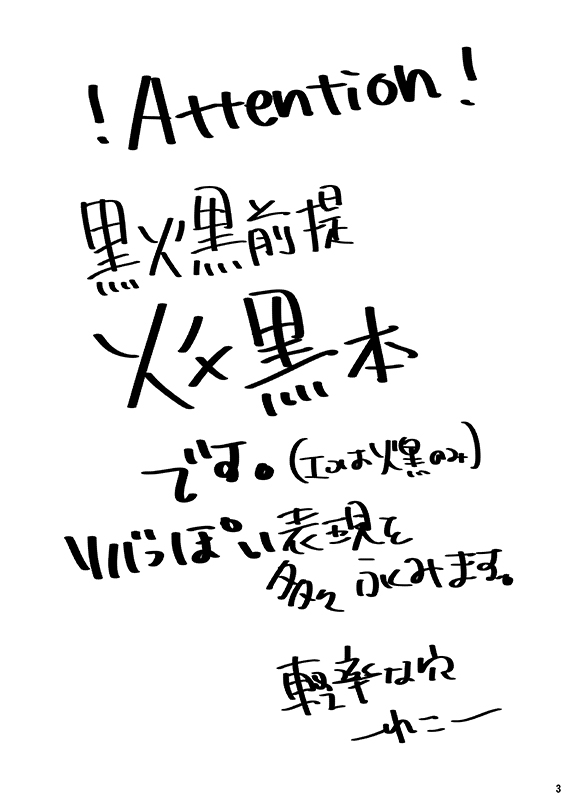 ! Attention !
黒火黒前提
火×黒本
です。(エロは火黒のみ)
リバっぽい表現を
多々ふくみます。
軽率な穴
れこ
3